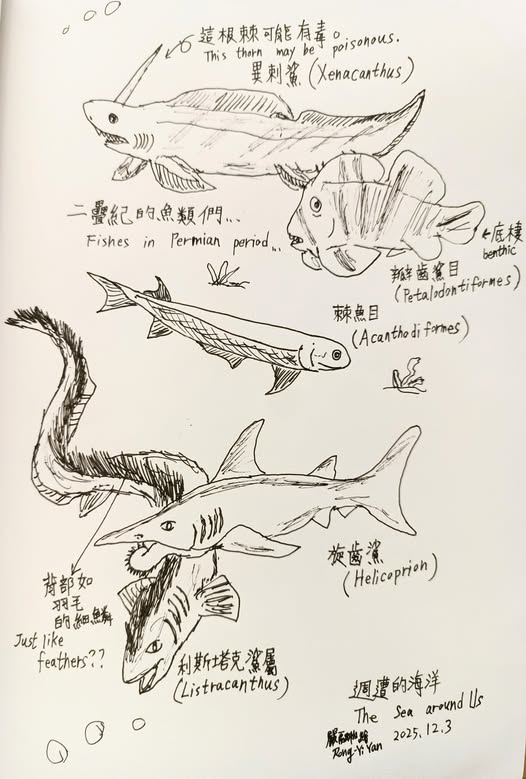 這根棘可能有毒。
This thorn may be poisonous.
異刺鯊 (Xenacanthus)
二疊紀的魚類們...
Fishes in Permian period...
←底棲
benthic
瓣齒鯊目
(Petalodontiformes)
棘魚目
(Acanthodiformes)
旋齒鯊
(Helicoprion)
背部如
羽毛
的細鱗
Just like
feathers??
利斯塔克鯊屬
(Listracanthus)
週遭的海洋
The Sea around Us
2025.12.3
Rong-Yi Yan